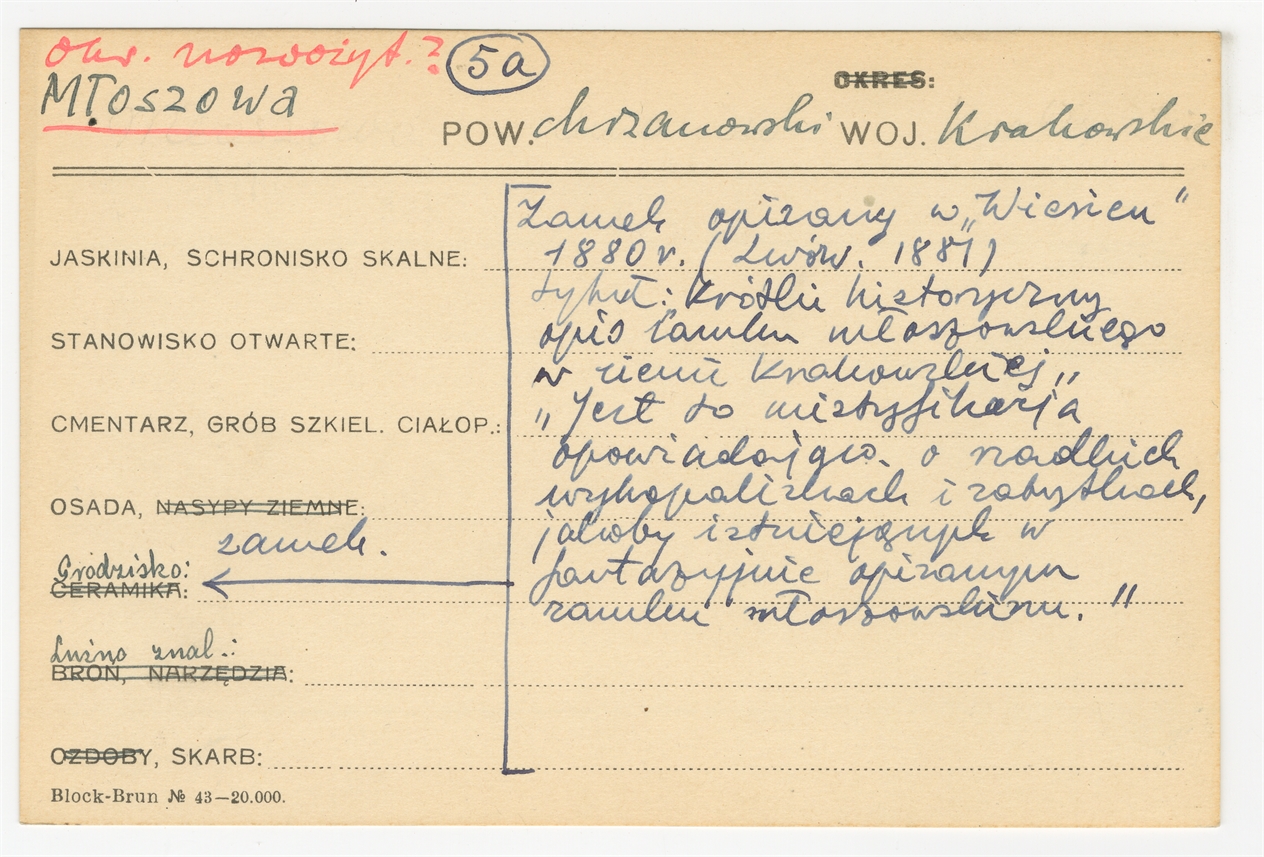 okr. nowożyt.? 5a
Młoszowa
OKRES:
POW. chrzanowski WOJ. Krakowskie
Zamek opisany w „Wieńcu"
1880 r. (Lwów. 1881)
JASKINIA, SCHRONISKO SKALNE:
tytuł: Krótki historyczny
opis zamku młoszowskiego
STANOWISKO OTWARTE:
w ziemi Krakowskiej„
„Jest to mistyfikacja
CMENTARZ, GRÓB SZKIEL. CIAŁOP.:
opowiadając. o rzadkich
wykopaliskach i zabytkach,
OSADA, NASYPY ZIEMNE:
jakoby istniejących w
zamek.
Grodzisko:
fantazyjnie opisanym
CERAMIKA:
zamku młoszowskim."
Luźno znal.:
BROŃ, NARZĘDZIA:
OZDOBY, SKARB:
Block-Brun № 43—20.000.